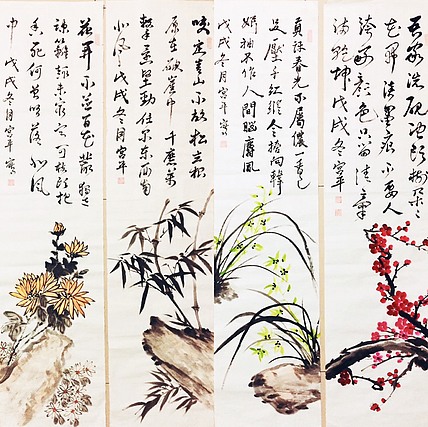 吾家洗砚池头树朵々
花开淡墨痕不要人
誇好颜色只留清气
满乾坤戊戌冬宫平
莫讶春光不属侬一香已
足压千红總令摘向韩
娘袖不作人间脑麝风
戊戌冬月宫平寫
咬定青山不放松立根
原在破崖中千磨萬
擊还坚劲任尔东西南
北风戊戌冬月宫平
花开不並百花叢獨立
疎籬趣未穷宁可枝头抱
香死何曾吹落北风
中戊戌冬月宫平寫